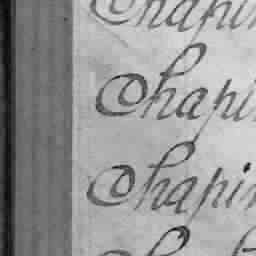 Chapin
Chapi
Chapin